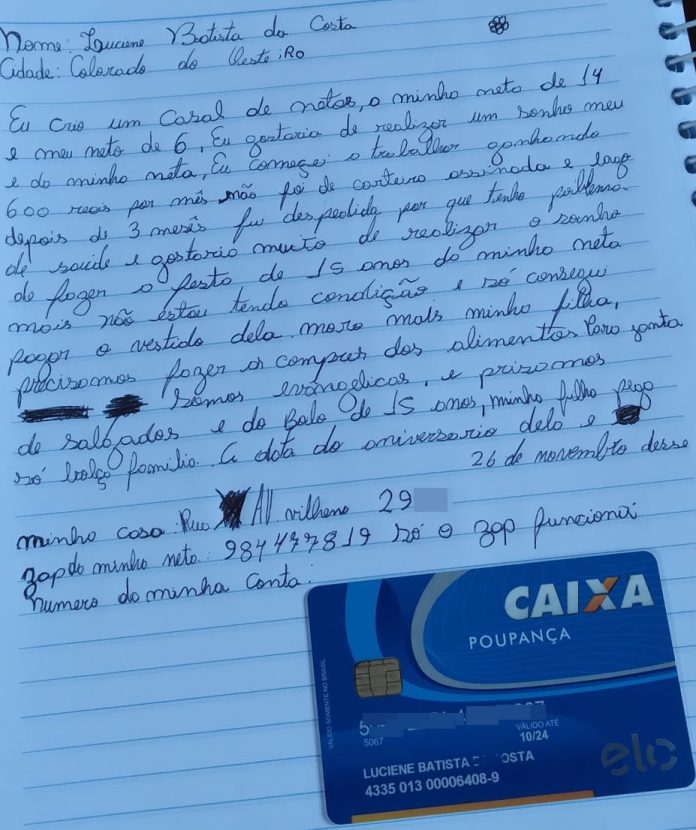 Nome: Luciene Batista da Costa
Cidade: Colorado do Oeste iRo
Eu crio um casal de netos, o minho neta de 14
e meu neto de 6, Eu gostaria de realizar um sonho meu
e do minha neta, Eu começei o trabalhar ganhando
600 reais por mês não foi de carteira assinada e logo
depois de 3 mesês fui despedida por que tenho poblema
de saúde e gostario muito de realizar o sonho
de fazer o festa de 15 anos do minha neta
mais não estou tendo condição e só consegui
pagar o vestido dela. moro mais minho filha,
precisamos fazer as compras dos alimentos Para janta
somos evangelicas, e prisamos
de salgados e do Bolo de 15 anos, minho filho pega
só bolço familio. A data do aniversario delo e
26 de novembro desse
minho casa. Rua AV vilheno 29
zap do minho neto. 984477819 só o zap funciona
numero do minha conta:
CAIXA
POUPANÇA
VÁLIDO SOMENTE NO BRASIL
5067
VÁLIDO ATÉ
10/24
LUCIENE BATISTA D OSTA
4335 013 00006408-9
elo